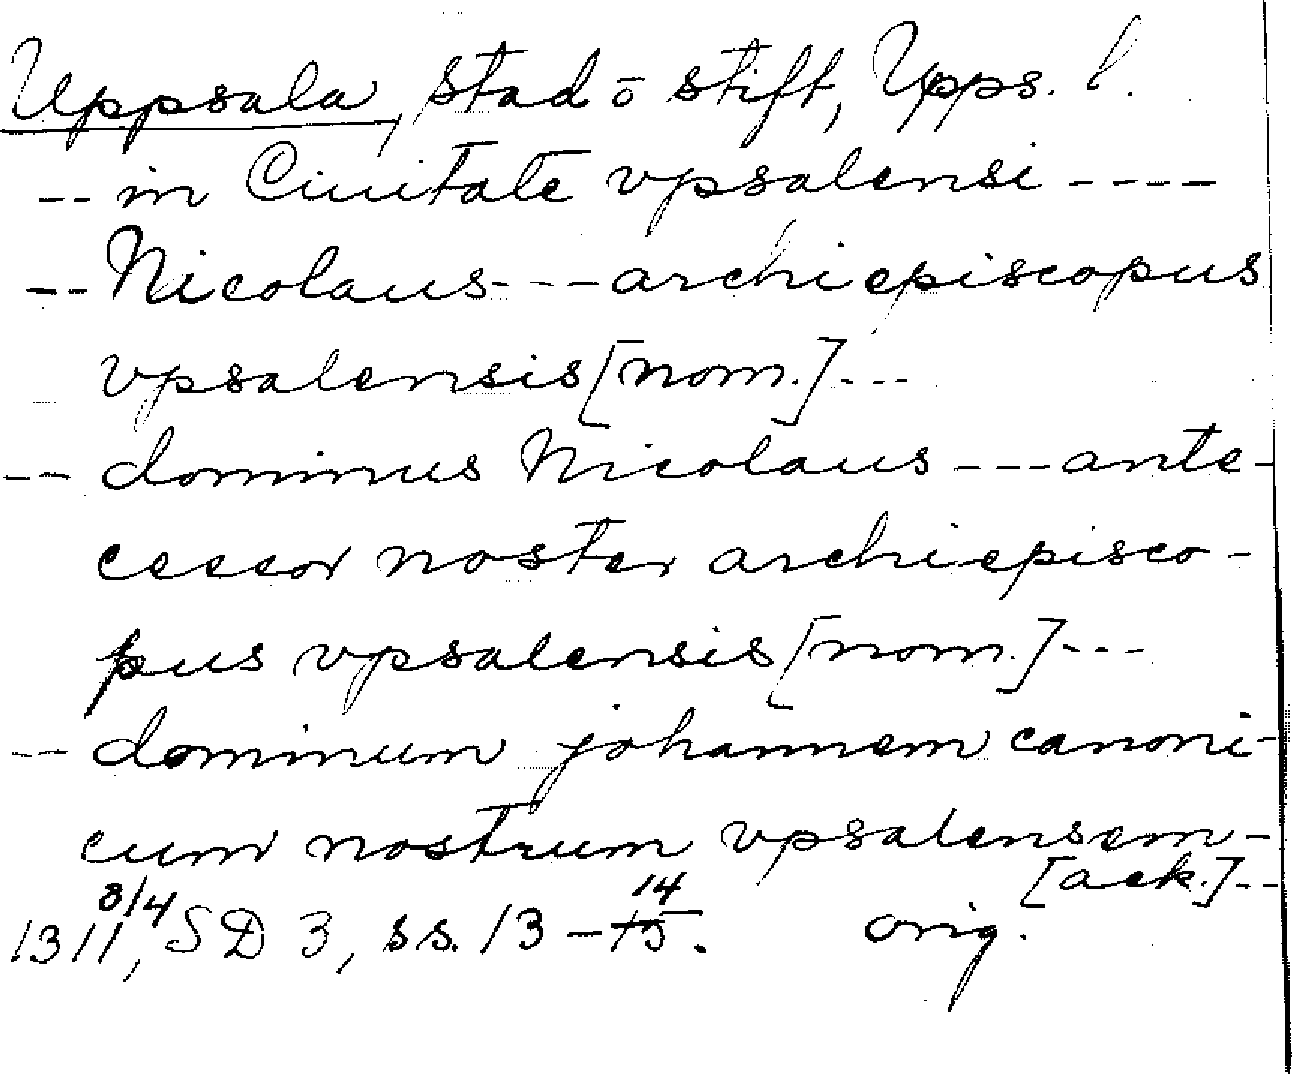 Uppsala, stad o stift, Upps. l.
-- in Ciuitate vpsalensi ----
-- Nicolaus --- archiepiscopus
vpsalensis [nom.] ---
-- dominus Nicolaus --- ante-
cessor noster archiepisco-
pus vpsalensis [nom.] ---
-- dominum johannem canoni-
cum nostrum vpsalensem -
[ack.] --
1311 8/4, SD 3, ss. 13 - 14. orig.